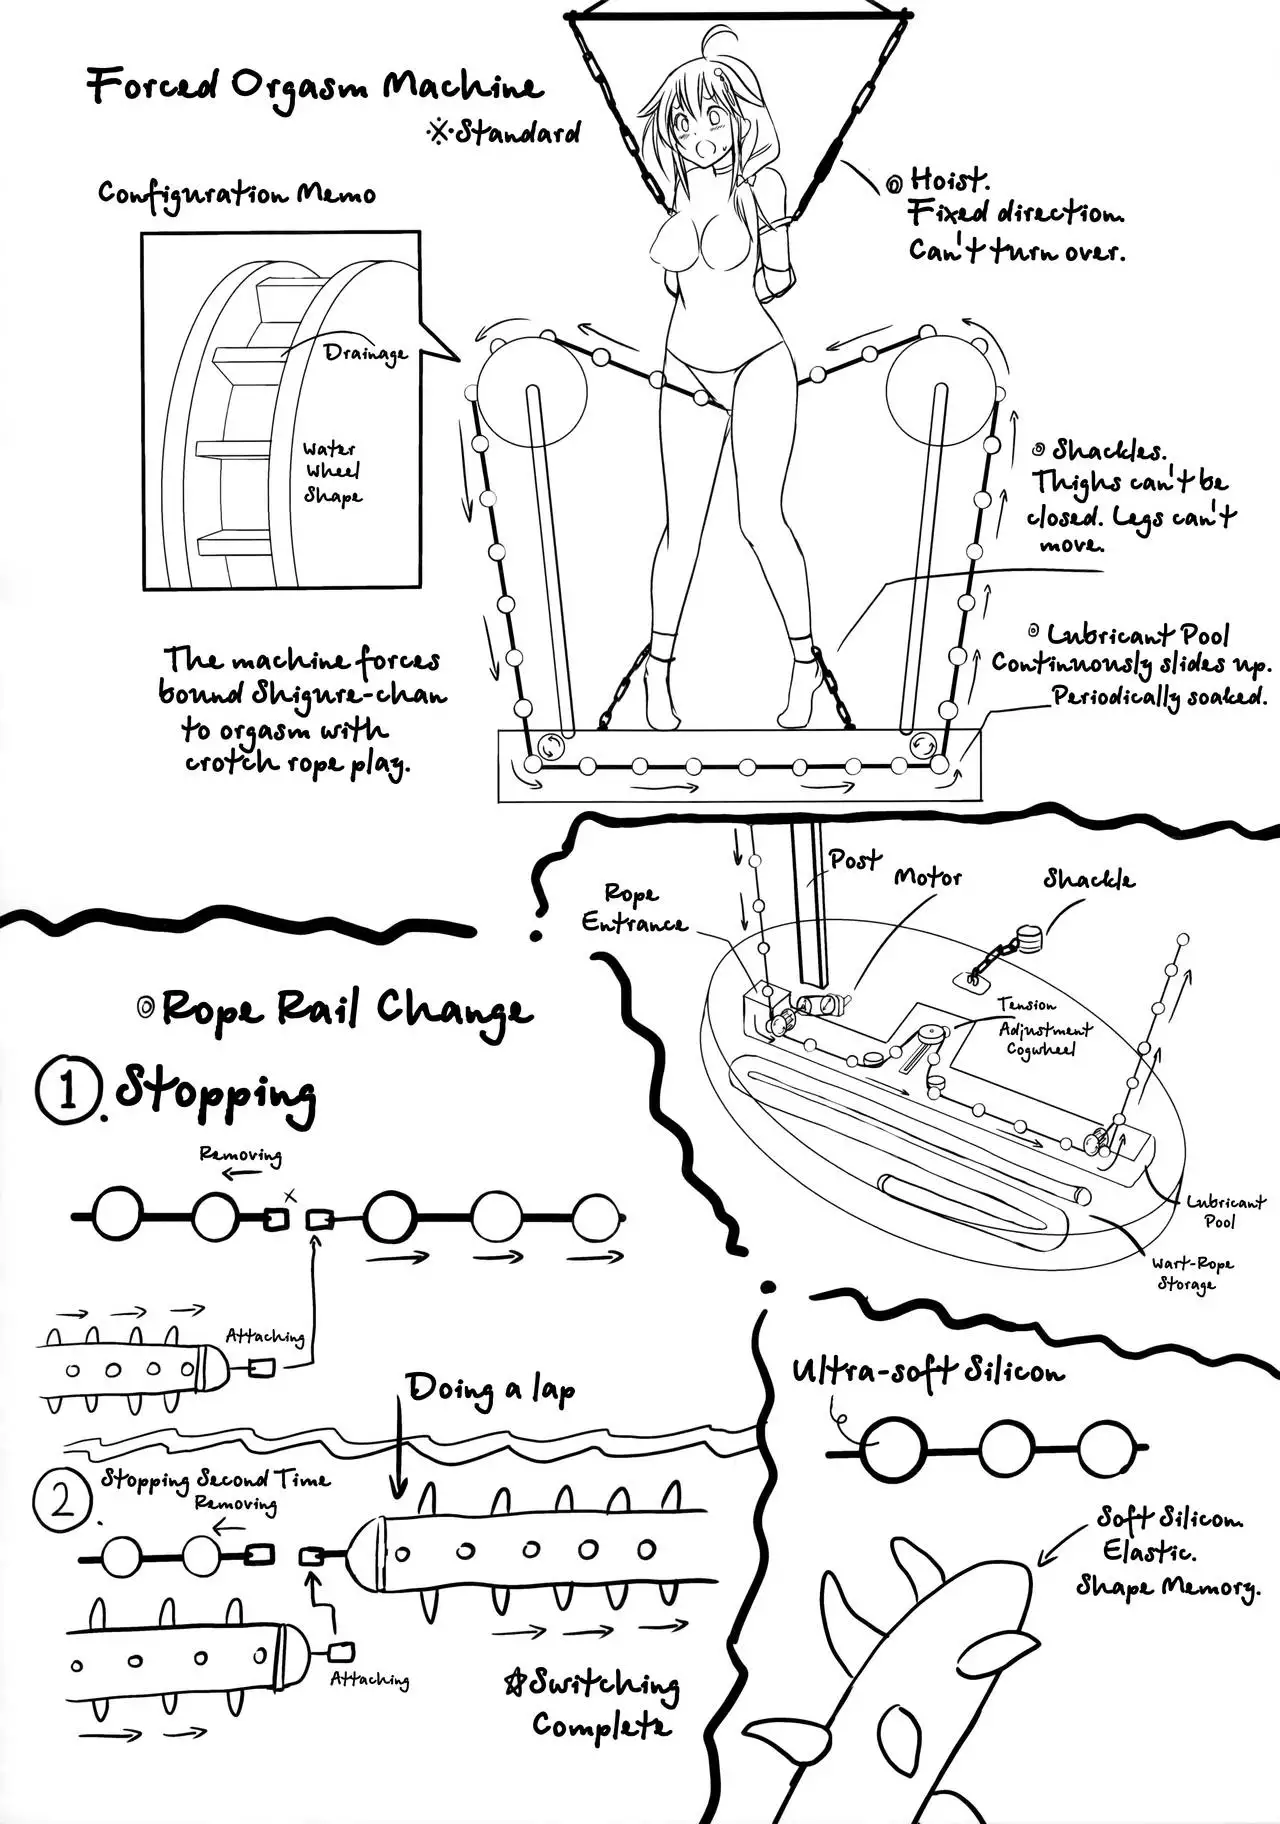 Forced Orgasm Machine
※Standard
Configuration Memo
Drainage
Water
Wheel
Shape
◎ Hoist.
Fixed direction.
Can't turn over.
◎ Shackles.
Thighs can't be
closed. Legs can't
move.
◎ Lubricant Pool
Continuously slides up.
Periodically soaked.
The machine forces
bound Shigure-chan
to orgasm with
crotch rope play.
Post
Motor
Shackle
Rope
Entrance
Tension
Adjustment
Cogwheel
Lubricant
Pool
Wart-Rope
Storage
◎Rope Rail Change
1. Stopping
Removing
×
Attaching
Doing a lap
2. Stopping Second Time
Removing
Attaching
☆Switching
Complete
Ultra-soft Silicon
Soft Silicon.
Elastic.
Shape Memory.